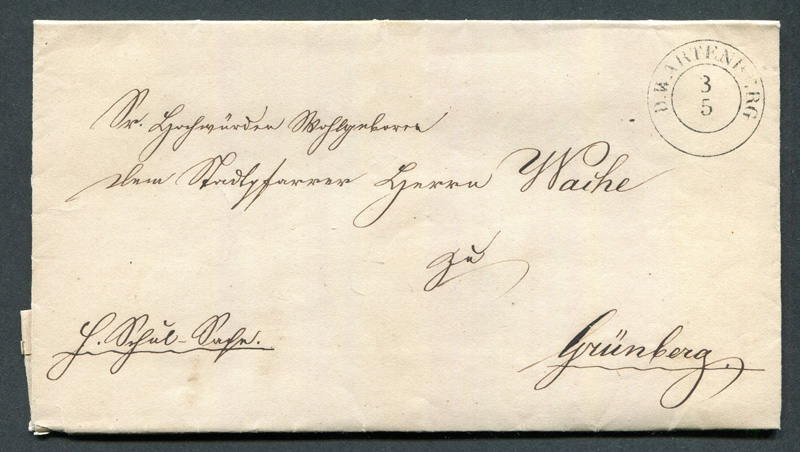 D.WARTENBERG
3
5
Sr. Hochwürden Wohlgeboren
dem Stadtpfarrer Herrn Wache
zu
H. Schul-Sache.
Grünberg.